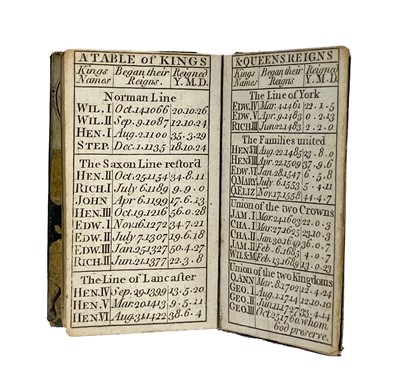 A TABLE of KINGS
Kings Names Began their Reigns Reigned Y. M. D.
Norman Line
WIL. I Oct. 14. 1066 20. 10. 26
WIL. II Sep. 9. 1087 12. 10. 24
HEN. I Aug. 2. 1100 35. 3. 29
STEP. Dec. 1. 1135 18. 10. 24
The Saxon Line restord
HEN. II Oct. 25. 1154 34. 8. 11
RICH. I July 6. 1189 9. 9. 0
JOHN Apr. 6. 1199 17. 6. 13
HEN. III Oct. 19. 1216 56. 0. 28
EDW. I Nov. 16. 1272 34. 7. 21
EDW. II July 7. 1307 19. 6. 18
EDW. III Jan. 25. 1327 50. 4. 27
RICH. II Jun. 21. 1377 22. 3. 8
The Line of Lancaster
HEN. IV Sep. 29. 1399 13. 5. 20
HEN. V Mar. 20. 1413 9. 5. 11
HEN. VI Aug. 31. 1422 38. 6. 4
& QUEENS REIGNS
Kings Names Began their Reigns Reigned Y. M. D.
The Line of York
EDW. IV Mar. 4. 1461 22. 1. 5
EDW. V Apr. 9. 1483 0. 2. 13
RICH. III Jun. 22. 1483 2. 2. 0
The Families united
HEN. VII Aug. 22. 1485 23. 8. 0
HEN. VIII Apr. 22. 1509 37. 9. 6
EDW. VI Jan. 28. 1547 6. 5. 8
Q. MARY July 6. 1553 5. 4. 11
Q. ELIZ. Nov. 17. 1558 44. 4. 7
Union of the two Crowns
JAM. I Mar. 24. 1603 22. 0. 3
CHA. I Mar. 27. 1625 23. 10. 3
CHA. II Jan. 30. 1649 36. 0. 7
JAM. II Feb. 6. 1685 4. 0. 7
WIL. & M. Feb. 13. 1689 13. 0. 23
Union of the two Kingdoms
Q. ANN Mar. 8. 1702 12. 4. 24
GEO. I Aug. 1. 1714 12. 10. 10
GEO. II Jun. 11. 1727 33. 4. 14
GEO. III Oct. 25. 1760. whom
God preserve.